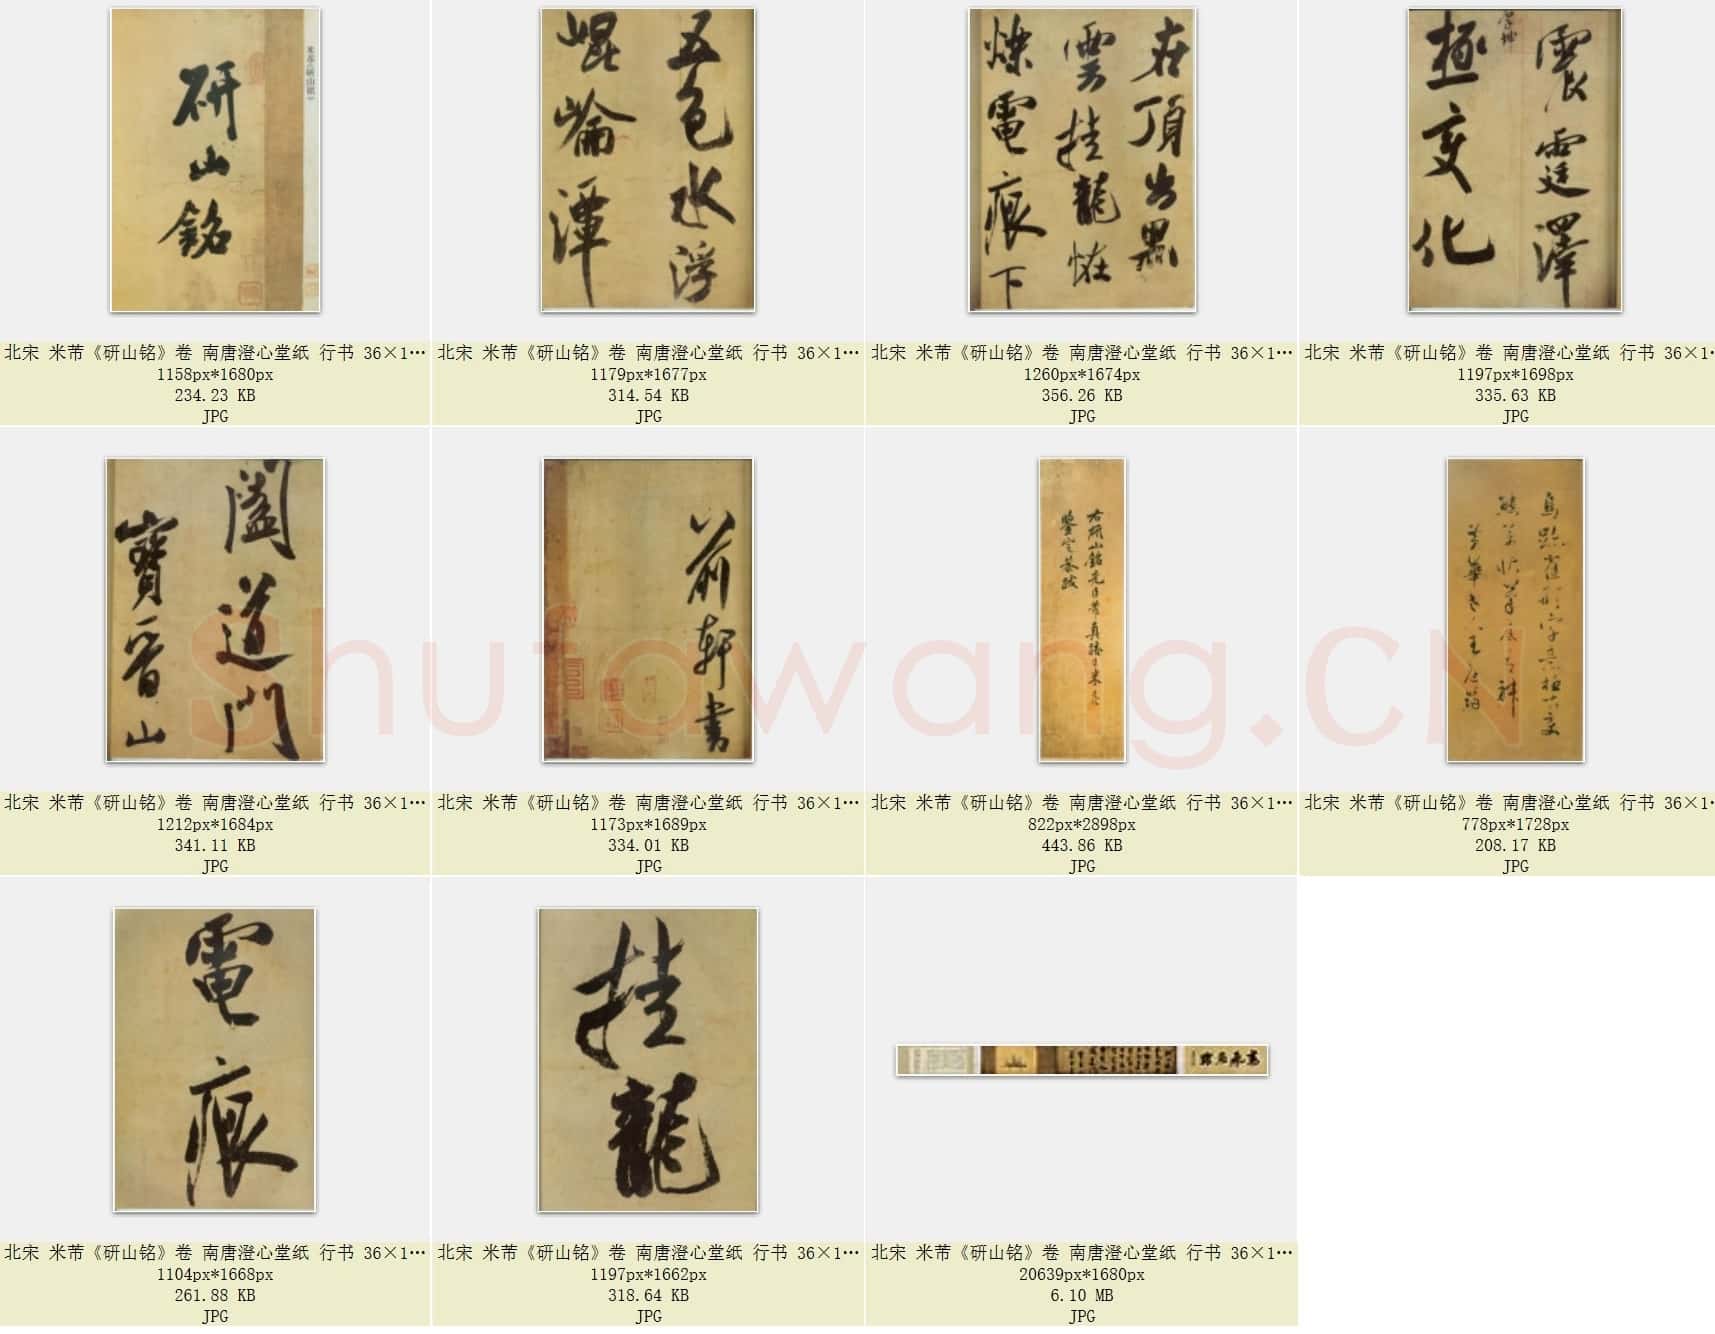 研山銘
米芾《研山銘》
五色水浮
崐崘潭
在頂出黑
雲挂龍恠
爍電痕下
震霆澤
極變化
北宋 米芾《研山铭》卷 南唐澄心堂纸 行书 36×1…
1158px*1680px
234.23 KB
JPG
北宋 米芾《研山铭》卷 南唐澄心堂纸 行书 36×1…
1179px*1677px
314.54 KB
JPG
北宋 米芾《研山铭》卷 南唐澄心堂纸 行书 36×1…
1260px*1674px
356.26 KB
JPG
北宋 米芾《研山铭》卷 南唐澄心堂纸 行书 36×1…
1197px*1698px
335.63 KB
JPG
闔道門
寶晉山
前軒書
右研山銘先臣芾真蹟臣米友仁
鑒定恭跋
鳥跡雀形字意極古變
態萬狀筆底有神
黃華老人王庭筠
Shufawang.CN
北宋 米芾《研山铭》卷 南唐澄心堂纸 行书 36×1…
1212px*1684px
341.11 KB
JPG
北宋 米芾《研山铭》卷 南唐澄心堂纸 行书 36×1…
1173px*1689px
334.01 KB
JPG
北宋 米芾《研山铭》卷 南唐澄心堂纸 行书 36×1…
822px*2898px
443.86 KB
JPG
北宋 米芾《研山铭》卷 南唐澄心堂纸 行书 36×1…
778px*1728px
208.17 KB
JPG
電痕
挂龍
北宋 米芾《研山铭》卷 南唐澄心堂纸 行书 36×1…
1104px*1668px
261.88 KB
JPG
北宋 米芾《研山铭》卷 南唐澄心堂纸 行书 36×1…
1197px*1662px
318.64 KB
JPG
北宋 米芾《研山铭》卷 南唐澄心堂纸 行书 36×1…
20639px*1680px
6.10 MB
JPG